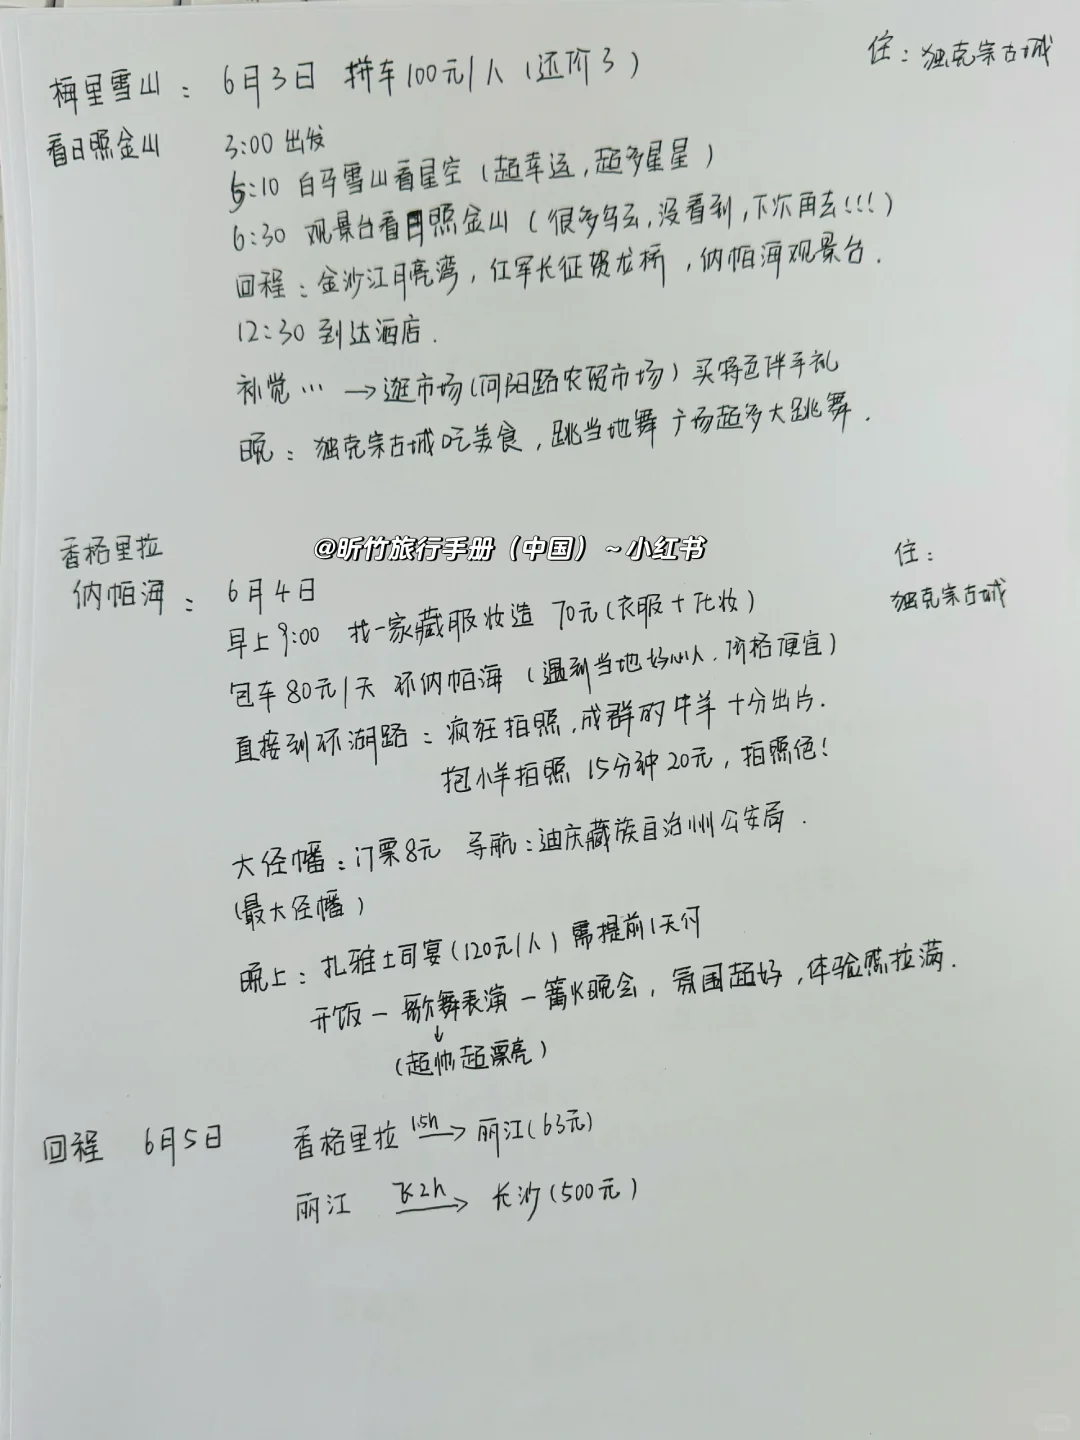 住：独克宗古城
梅里雪山：6月3日 拼车100元/人（还价了）
看日照金山 3:00 出发
5:10 白马雪山看星空（超幸运，超多星星）
6:30 观景台看日照金山（很多乌云，没看到，下次再去!!!）
回程：金沙江月亮湾，红军长征贺龙桥，纳帕海观景台．
12:30 到达酒店．
补觉… →逛市场(向阳路农贸市场）买特色伴手礼
晚：独克宗古城吃美食，跳当地舞 广场超多大跳舞．
@昕竹旅行手册（中国）~小红书
香格里拉
住：
纳帕海：6月4日
独克宗古城
早上9:00 找一家藏服妆造 70元(衣服+化妆）
包车80元/天 环纳帕海（遇到当地好心人．价格便宜）
直接到环湖路：疯狂拍照，成群的牛羊十分出片．
抱小羊拍照 15分钟20元，拍照色！
大径幡：门票8元 导航：迪庆藏族自治州公安局．
（最大径幡）
晚上：扎雅土司宴(120元/人）需提前1天付
开饭－歌舞表演－篝火晚会，氛围超好，体验感拉满．
↓
(超帅超漂亮）
回程 6月5日 香格里拉 1.5h→ 丽江(63元)
丽江 飞2h→ 长沙(500元）